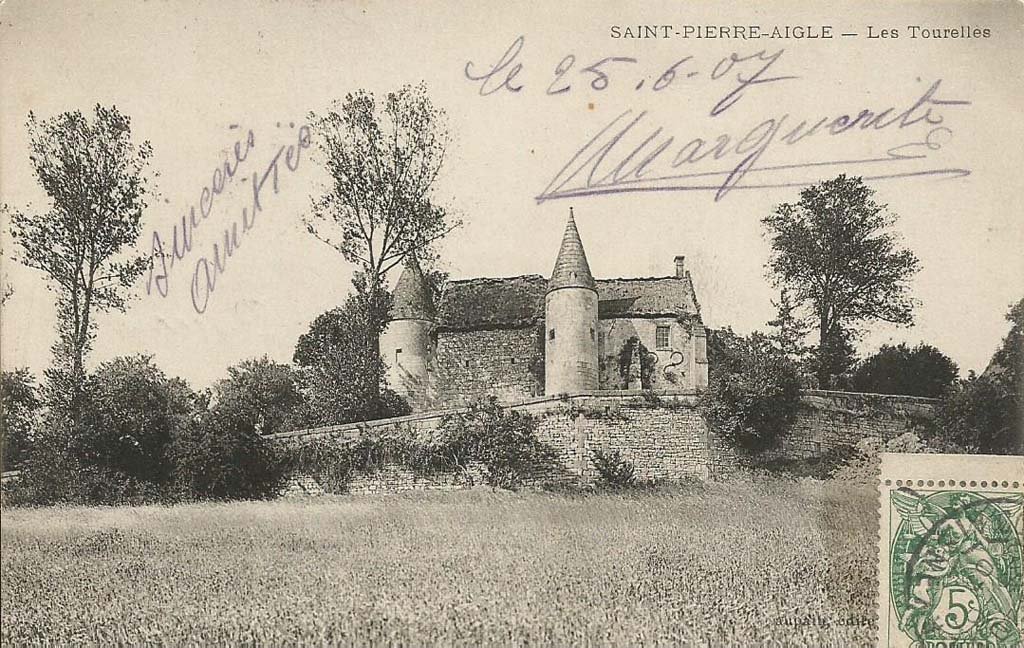 SAINT-PIERRE-AIGLE — Les Tourelles
le 25.6-07
Marguerite
Sincères
amitiés
édit
5c